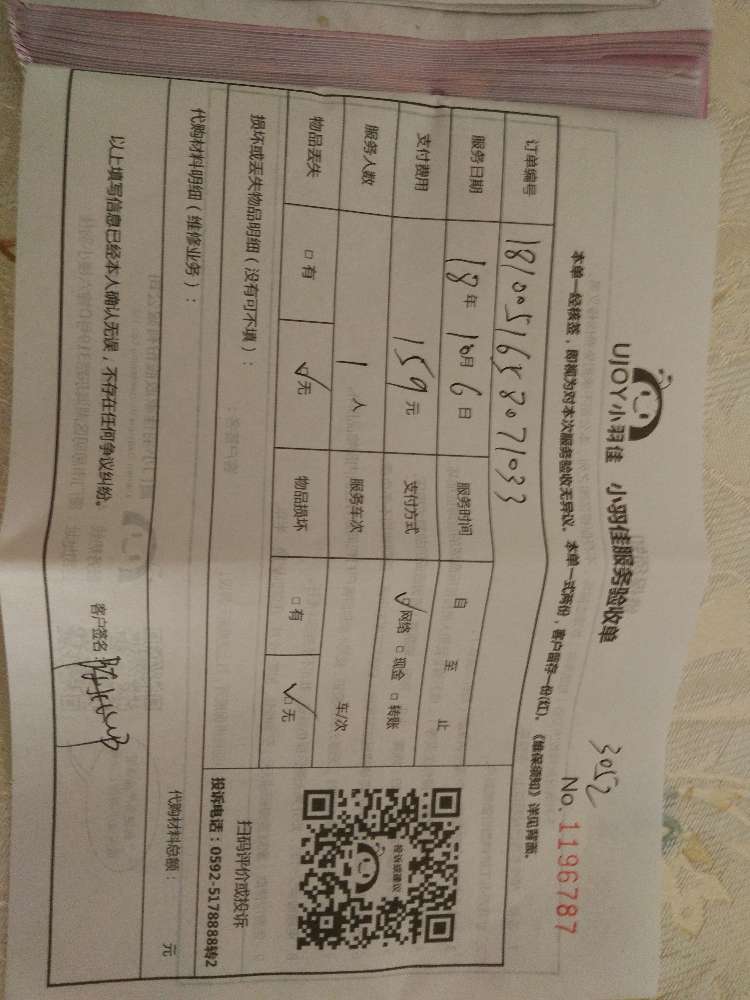 3052
UJOY小羽佳 小羽佳服务验收单
No. 1196787
本单一经核签，即视为对本次服务验收无异议。本单一式两份，客户留存一份(红)。《维保须知》详见背面。
订单编号 181005165807 1033
服务日期 18年 10月 6日 服务时间 自 至 止
支付费用 159元 支付方式 ☑网络 □现金 □转账
服务人数 1人 服务车次 车/次
物品丢失 □有 ☑无 物品损坏 □有 ☑无
损坏或丢失物品明细（没有可不填）：
投诉建议
扫码评价或投诉
投诉电话：0592-5178888转2
代购材料明细（维修业务）： 代购材料总额： 元
以上填写信息已经本人确认无误，不存在任何争议纠纷。 客户签名：